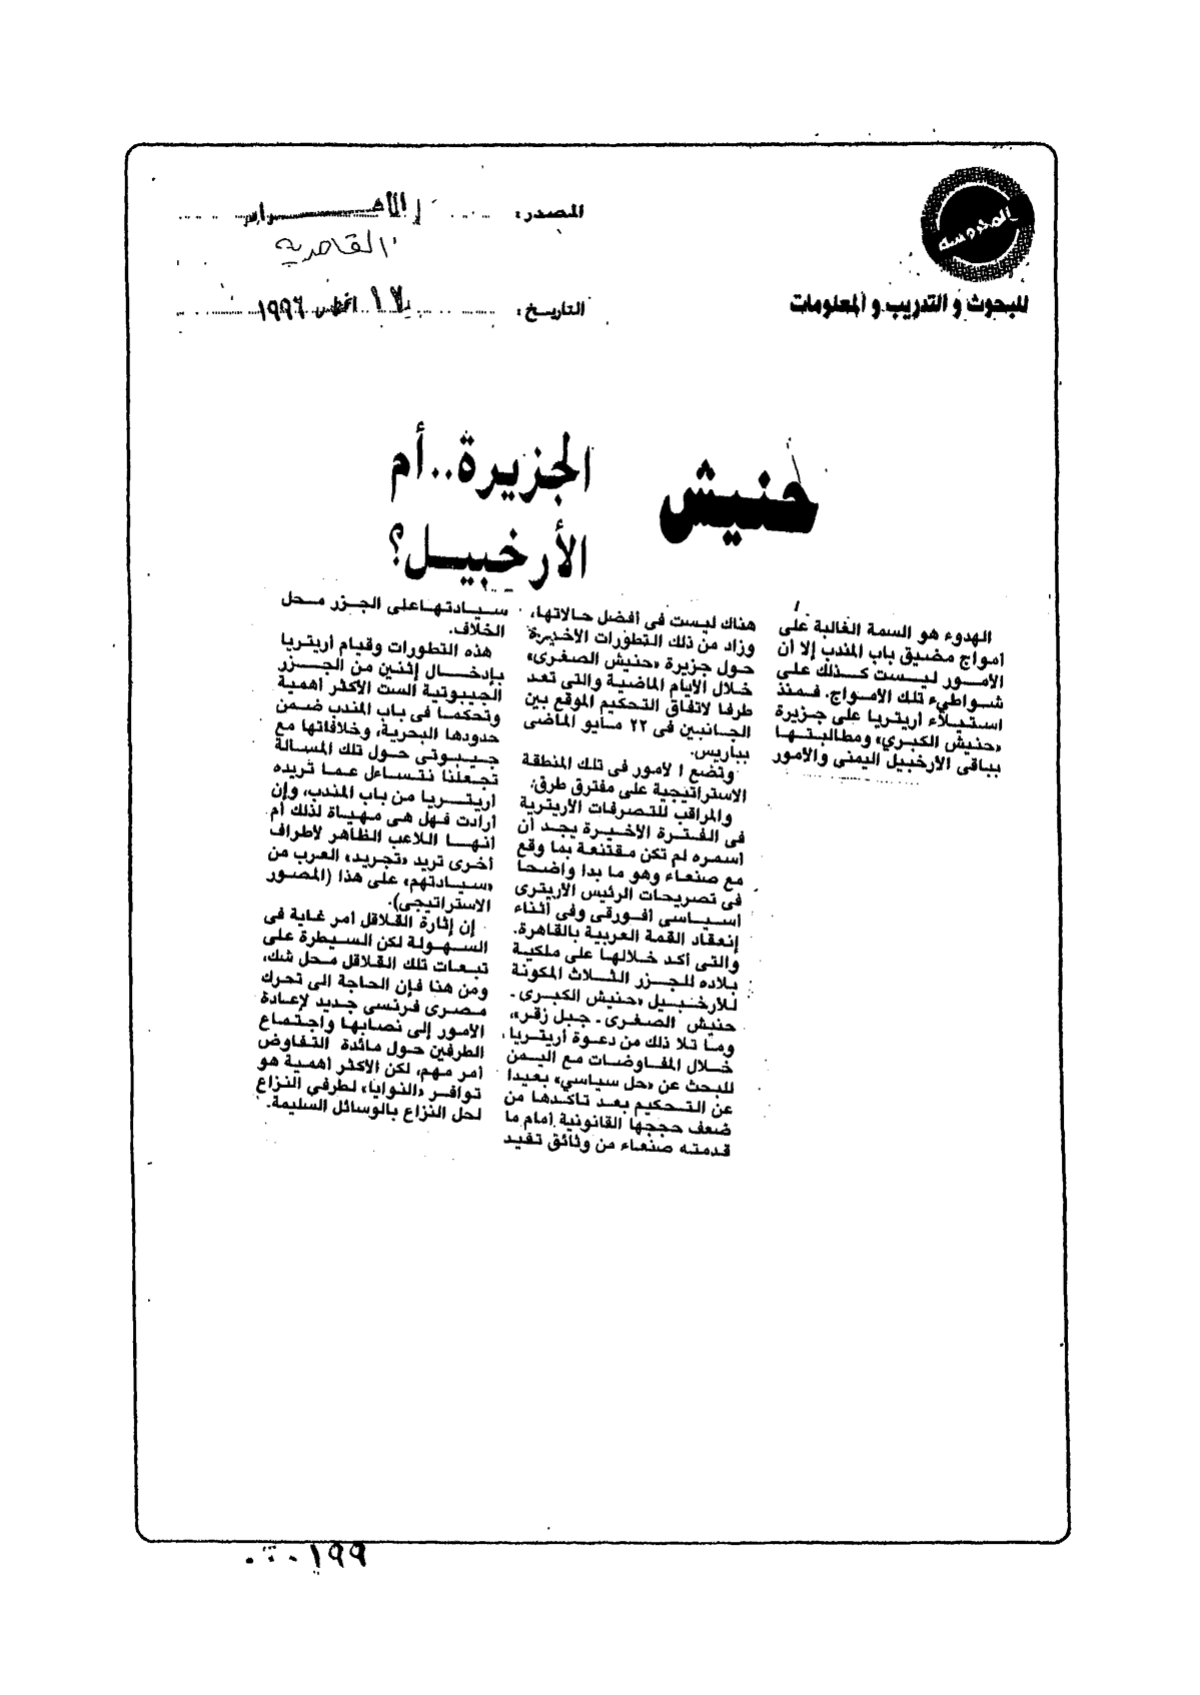 المحروسة
للبحوث و التدريب و المعلومات
المصدر: الأهرام
القاهرية
التاريخ: ١٧ أغسطس ١٩٩٦
حنيش الجزيرة..أم
الأرخبيل؟
الهدوء هو السمة الغالبة على
أمواج مضيق باب المندب إلا أن
الأمور ليست كذلك على
شواطيء تلك الأمواج. فمنذ
استيلاء أريتريا على جزيرة
«حنيش الكبري» ومطالبتها
بباقى الأرخبيل اليمنى والأمور
هناك ليست فى أفضل حالاتها،
وزاد من ذلك التطورات الأخيرة
حول جزيرة «حنيش الصغرى»
خلال الأيام الماضية والتى تعد
طرفا لاتفاق التحكيم الموقع بين
الجانبين فى ٢٢ مايو الماضى
بباريس.
وتضع الأمور فى تلك المنطقة
الاستراتيجية على مفترق طرق؛
والمراقب للتصرفات الأريترية
فى الفترة الأخيرة يجد أن
اسمره لم تكن مقتنعة بما وقع
مع صنعاء وهو ما بدا واضحا
فى تصريحات الرئيس الأريترى
اسياسى أفورقى وفى أثناء
إنعقاد القمة العربية بالقاهرة.
والتى أكد خلالها على ملكية
بلاده للجزر الثلاث المكونة
للأرخبيل «حنيش الكبرى -
حنيش الصغرى - جبل زقر»،
وما تلا ذلك من دعوة أريتريا
خلال المفاوضات مع اليمن
للبحث عن «حل سياسي» بعيدا
عن التحكيم بعد تاكدها من
ضعف حججها القانونية أمام ما
قدمته صنعاء من وثائق تفيد
سيادتها على الجزر محل
الخلاف.
هذه التطورات وقيام أريتريا
بإدخال إثنين من الجزر
الجيبوتية الست الأكثر أهمية
وتحكما فى باب المندب ضمن
حدودها البحرية، وخلافاتها مع
جيبوتى حول تلك المسالة
تجعلنا نتساءل عما تريده
اريتريا من باب المندب، وإن
أرادت فهل هى مهياة لذلك أم
أنها اللاعب الظاهر لأطراف
أخرى تريد «تجريد» العرب من
«سيادتهم» على هذا (المصور
الاستراتيجى).
إن إثارة القلاقل أمر غاية فى
السهولة لكن السيطرة على
تبعات تلك القلاقل محل شك،
ومن هنا فإن الحاجة الى تحرك
مصرى فرنسى جديد لإعادة
الأمور إلى نصابها واجتماع
الطرفين حول مائدة التفاوض
أمر مهم، لكن الأكثر أهمية هو
توافر «النوايا» لطرفي النزاع
لحل النزاع بالوسائل السليمة.
٠٠٠١٩٩